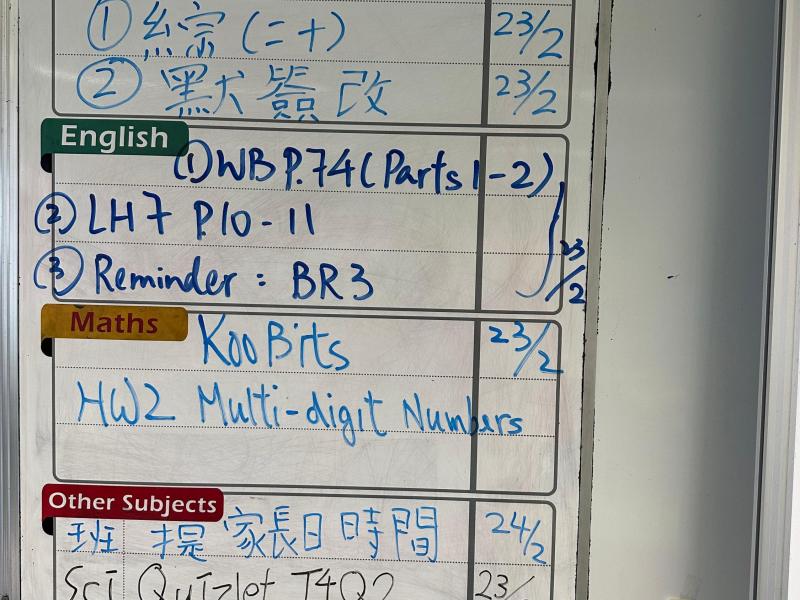 ① 綜 (二十) 23/2
② 默簽改 23/2
English
① WB P.74 (Parts 1-2)
② LH7 P.10-11
③ Reminder: BR3 23/2
Maths
KooBits 23/2
HW2 Multi-digit Numbers
Other Subjects
班 提家長日時間 24/2
Sci Quizlet T4Q2 23/